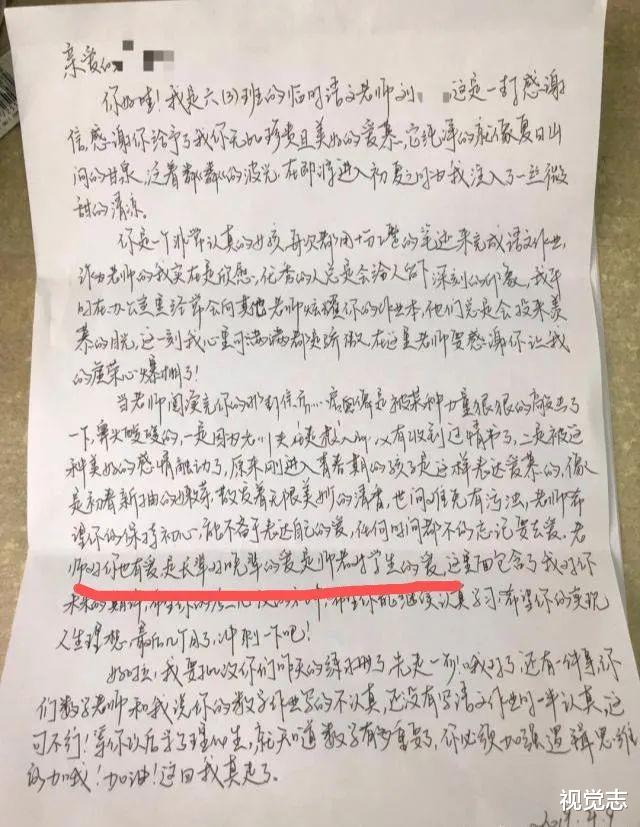 亲爱的
你好哇!我是六(3)班的临时语文老师刘 这是一封感谢
信,感谢你给予了我你无比珍贵且美好的爱慕,它纯净的就像夏日山
间的甘泉,泛着粼粼的波光,在即将进入初夏之间为我注入了一丝微
甜的清凉。
你是一个非常认真的女孩,每次都用十分工整的笔迹来完成语文作业,
作为老师的我实在是欣慰,优秀的人总是会给人留下深刻的印象,我平
时在办公室里经常会向其他老师炫耀你的作业本,他们总是会投来羡
慕的目光,这一刻我心里可满满都是骄傲,在这里老师要感谢你让我
的虚荣心爆棚了!
当老师阅读完你的那封信后…后面像是被某种力量狠狠的敲击了
一下,鼻头酸酸的,一是因为 没有收到过情书了,二是被这
种美好的感情触动了,原来刚进入青春期的孩子是这样表达爱慕的,像
是初春新抽的嫩芽,散发着无限美妙的清香,世间难免有污浊,老师希
望你能保持初心,能不吝于表达自己的爱,任何时间都不能忘记要去爱,老
师对你也有爱,是长辈对晚辈的爱是师者对学生的爱,这里面包含了我对你
未来的期许,希望你 希望你能继续认真学习,希望你能实现
人生理想,最后几个月了,冲刺一下吧!
好啦,我要批改你们昨天的练习册了,先走一步!哦对了,还有一件事,你
们数学老师和我说你的数学作业写的不认真,还没有写语文作业时一半认真,这
可不行!等你以后学了理化生,就知道数学有多重要了,你必须加强逻辑思维
的加哦!加油!这回我真走了。
2019.4.9
视觉志